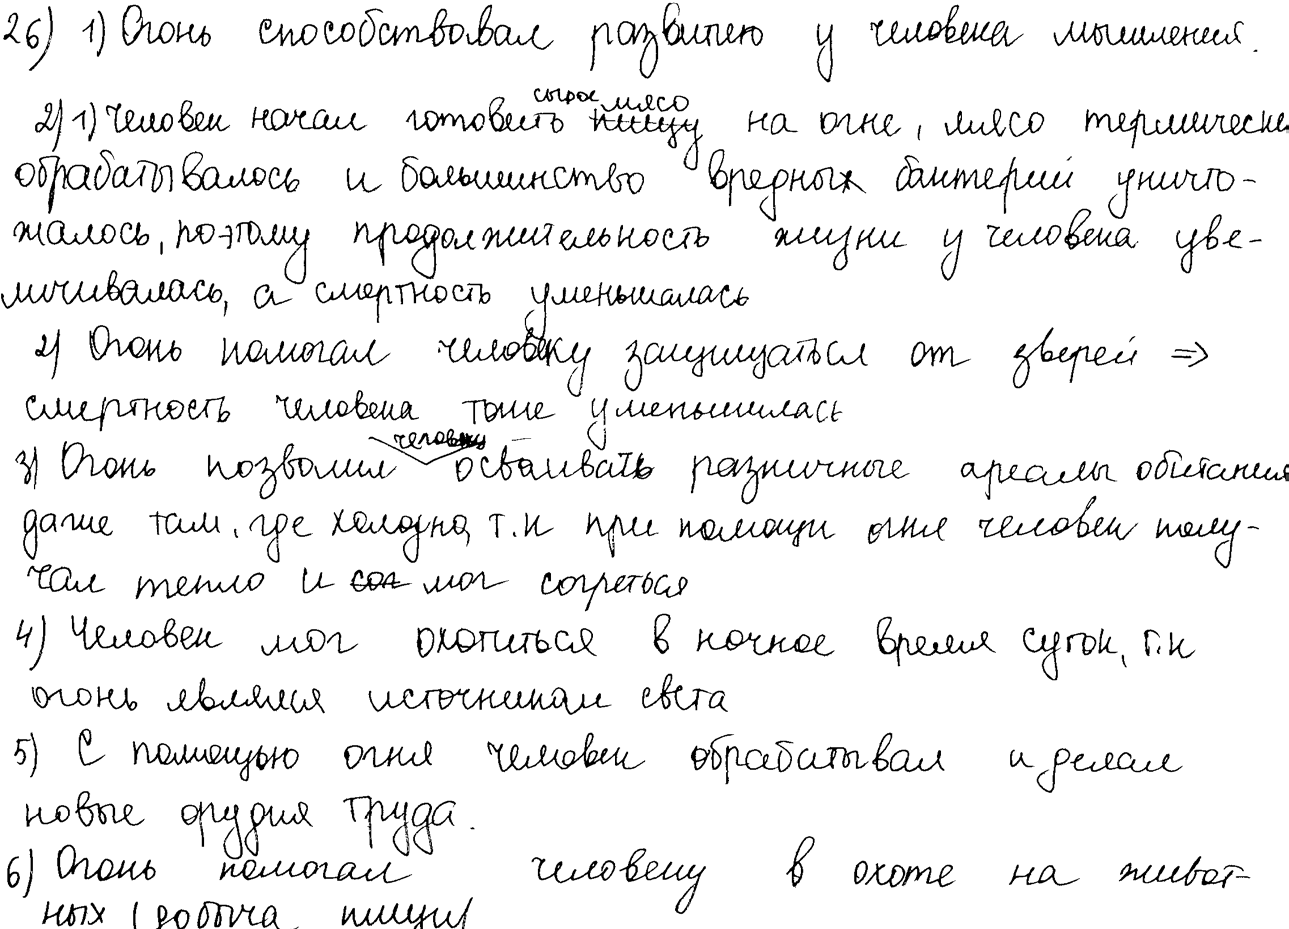 26) 1) Огонь способствовал развитею у человека мышления.
2) 1) Человек начал готовить сырое мясо пищу на огне, мясо термически
обрабатывалось и большинство вредных бактерий уничто-
жалось, поэтому продолжительность жизни у человека уве-
личивалась, а смертность уменьшалась
2) Огонь помогал человеку защищаться от зверей =>
смертность человека тоже уменьшилась
3) Огонь позволил человеку осваивать различные ареалы обитания
даже там, где холодно, т.к при помощи огня человек полу-
чал тепло и сог мог согреться
4) Человек мог охотиться в ночное время суток, т.к
огонь являлся источником света
5) С помощью огня человек обрабатывал и делал
новые орудия труда.
6) Огонь помогал человеку в охоте на живот-
ных (добыча пищи)